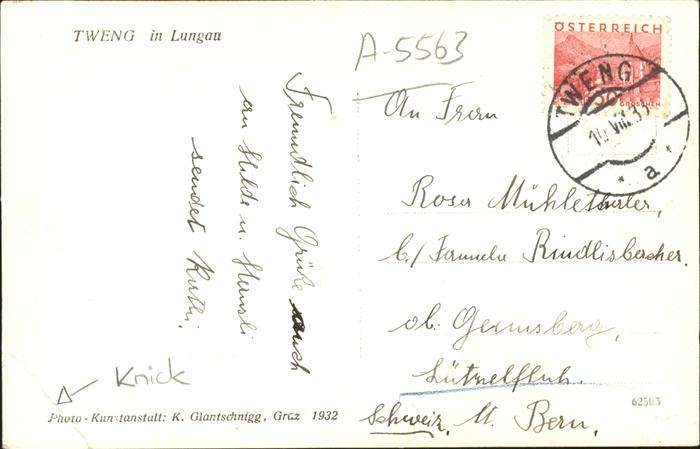 TWENG in Lungau
A-5563
ÖSTERREICH
GROSCHEN
TWENG
VIII.
a
Freundlich Grüße auch
an Hilde u. Hansli
sendet Ruthi.
An Frau
Rosa Mühlethaler,
b/ Familie Rindlisbacher.
ob. Gerensberg,
Lützelflüh.
Schweiz, Kt. Bern.
Knick
Photo-Kunstanstalt: K. Glantschnigg, Graz 1932
62503